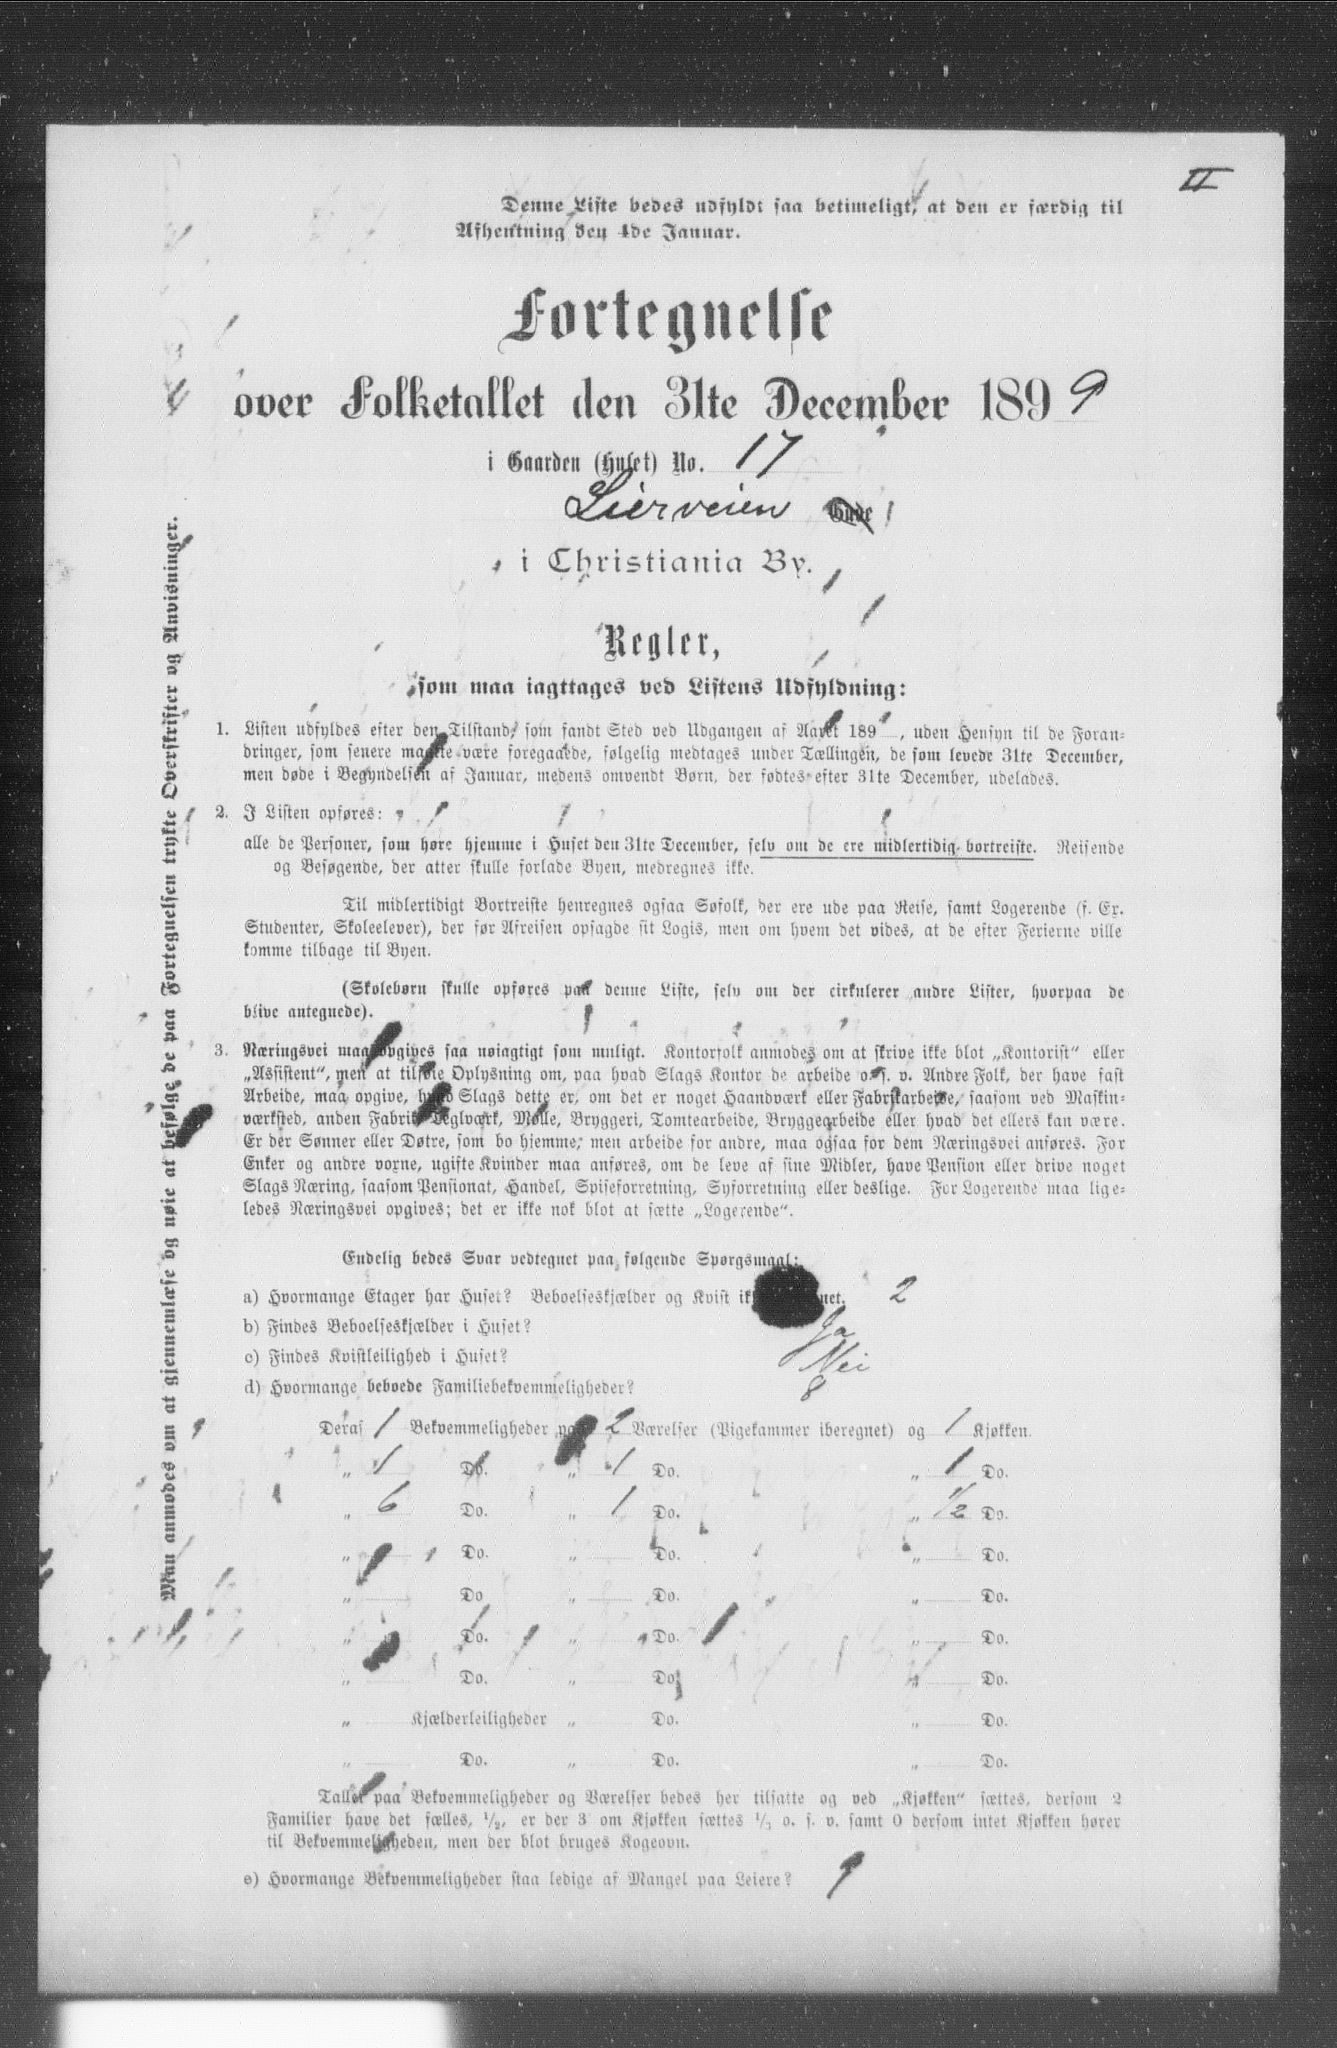 II
Denne Liste bedes udfyldt saa betimeligt, at den er færdig til
Afhentning den 4de Januar.
Fortegnelse
over Folketallet den 31te December 1899
i Gaarden (Huset) No. 17
Lierveien Gade
i Christiania By.
Regler,
som maa iagttages ved Listens Udfyldning:
1. Listen udfyldes efter den Tilstand, som fandt Sted ved Udgangen af Aaret 189 , uden Hensyn til de Foran-
dringer, som senere maatte være foregaaede, følgelig medtages under Tællingen, de som levede 31te December,
men døde i Begyndelsen af Januar, medens omvendt Børn, der fødtes efter 31te December, udelades.
2. I Listen opføres:
alle de Personer, som høre hjemme i Huset den 31te December, selv om de ere midlertidig bortreiste. Reisende
og Besøgende, der atter skulle forlade Byen, medregnes ikke.
Til midlertidigt Bortreiste henregnes ogsaa Søfolk, der ere ude paa Reise, samt Logerende (f. Ex.
Studenter, Skoleelever), der før Afreisen opsagde sit Logis, men om hvem det vides, at de efter Ferierne ville
komme tilbage til Byen.
(Skolebørn skulle opføres paa denne Liste, selv om der cirkulerer andre Lister, hvorpaa de
blive antegnede).
3. Næringsvei maa opgives saa nøiagtigt som muligt. Kontorfolk anmodes om at skrive ikke blot „Kontorist“ eller
„Assistent“, men at tilføie Oplysning om, paa hvad Slags Kontor de arbeide o. s. v. Andre Folk, der have fast
Arbeide, maa opgive, hvad Slags dette er, om det er noget Haandværk eller Fabrikarbeide, saasom ved Maskin-
værksted, anden Fabrik, Teglværk, Mølle, Bryggeri, Tomtearbeide, Bryggearbeide eller hvad det ellers kan være.
Er der Sønner eller Døtre, som bo hjemme, men arbeide for andre, maa ogsaa for dem Næringsvei anføres. For
Enker og andre voxne, ugifte Kvinder maa anføres, om de leve af sine Midler, have Pension eller drive noget
Slags Næring, saasom Pensionat, Handel, Spiseforretning, Syforretning eller deslige. For Logerende maa lige-
ledes Næringsvei opgives; det er ikke nok blot at sætte „Logerende“.
Endelig bedes Svar vedtegnet paa følgende Spørgsmaal:
a) Hvormange Etager har Huset? Beboelseskjælder og Kvist 2
b) Findes Beboelseskjælder i Huset? Ja
c) Findes Kvistleilighed i Huset? Nei
d) Hvormange beboede Familiebekvemmeligheder? 8
Deraf 1 Bekvemmeligheder paa 2 Værelser (Pigekammer iberegnet) og 1 Kjøkken.
„ 1 Do. „ 1 Do. „ 1 Do.
„ 6 Do. „ 1 Do. „ 1/2 Do.
„ Do. „ Do. „ Do.
„ Do „ Do. „ Do.
„ Do. „ Do. „ Do.
„ Do. „ Do. „ Do.
„ Kjælderleiligheder „ Do. „ Do.
„ Do. „ Do. „ Do.
Tallet paa Bekvemmeligheder og Værelser bedes her tilsatte og ved „Kjøkken“ sættes, dersom 2
Familier have det fælles, 1/2, er der 3 om Kjøkken sættes 1/3 o. s. v. samt 0 dersom intet Kjøkken hører
til Bekvemmeligheden, men der blot bruges Kogeovn.
e) Hvormange Bekvemmeligheder staa ledige af Mangel paa Leiere?
Man anmodes om at gjennemlæse og nøie at befølge de paa Fortegnelsen trykte Overskrifter og Anvisninger.